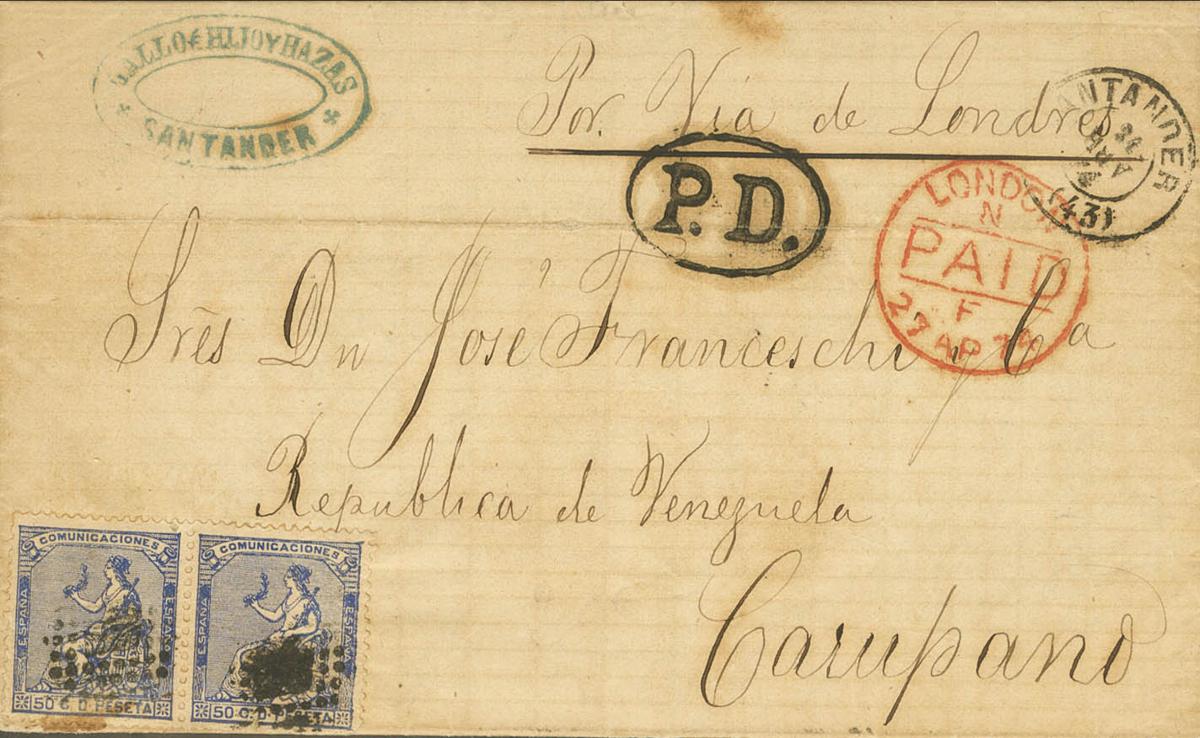 GALLO é HIJO Y HAZAS
SANTANDER
Por Via de Londres
SANTANDER
(43)
P.D.
LONDON
N
PAID
F
27 AP 74
Sres Dn José Franceschi y Ca
Republica de Venezuela
Carupano
COMUNICACIONES
ESPAÑA
ESPAÑA
50 C. D. PESETA
COMUNICACIONES
ESPAÑA
ESPAÑA
50 C. D. PESETA